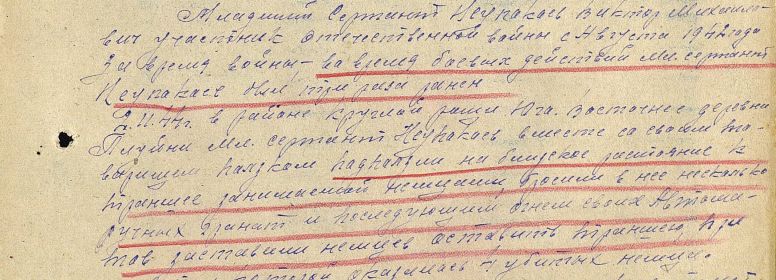 Младший Сержант Неупакаев Виктор Михаило-
вич участник отечественной войны с Августа 1942 года
За время войны - во время боевых действий мл. сержант
Неупакаев был три раза ранен
2.11.44г. в районе круглой рощи Юго. восточнее деревни
мл. сержант Неупакаев вместе со своим то-
варищем подползли на близкое растояние к
траншее занимаемой немцами, бросили в нее несколько
ручных гранат и последующим огнем своих Автома-
тов заставили немцев оставить траншею, при
оказалось 4 убитых немца.